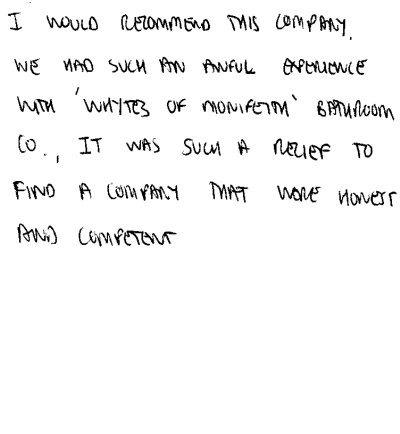 I WOULD RECOMMEND THIS COMPANY.
WE HAD SUCH AN AWFUL EXPERIENCE
WITH 'WHYTES OF MONIFEITH' BATHROOM
CO., IT WAS SUCH A RELIEF TO
FIND A COMPANY THAT WERE HONEST
AND COMPETENT